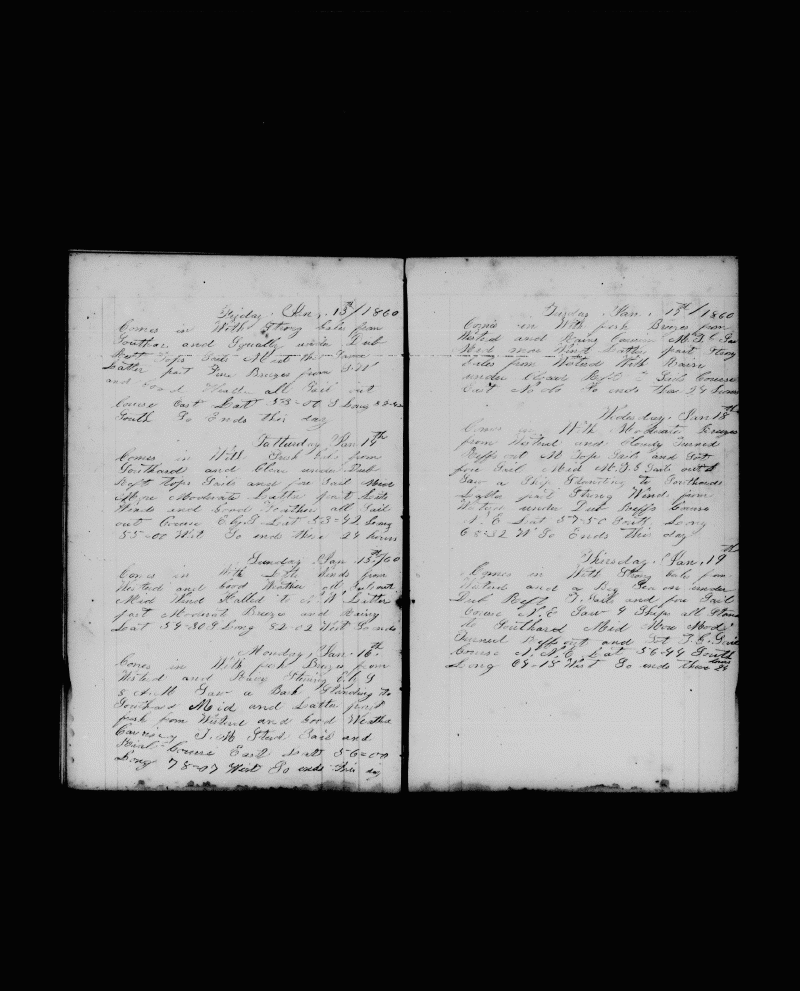 Friday, Jan, 13th/1860
Comes in With Strong Gale from
Southar and Squally under Dub
Refft Tops Sails Mid the Same
Latter part Fine Breezes from S.W
and Good Weath all Sail out
Course East Lat 53=07 S Long
South So Ends this day
Satturday Jan 14th
Comes in With Fresh Gale from
Southard and Clear under Dub
Refft tops Sails and fore Sail Mid
More Moderate Latter part Lite
Winds and Good Weather all Sail
out Course E by S Lat 53=42 Long
55=00 West So ends these 24 hours
Sunday Jan 15th/60
Comes in With Lite Winds from
Westerd and Good Weather all Sail out
Mid Wind Halled to N W Latter
part Moderate Breeze and Rainy
Lat 54=30 S Long 82=02 West So ends
Monday, Jan. 16th
Comes in With fresh Breezes from
Westerd and Rainy Steering E by S
8 A.M Saw a Bark Standing to
Southard Mid and Latter part
fresh from Westerd and Good Weather
Carrying T. M Stud Sail and
Course East Lat 56=00
Long 78=07 West So ends this day
Tuesday Jan, 17th/1860
Comes in With fresh Breezes from
Westerd and Rainy Carrin M.T.G Sail
Mid more Wind Latter part Strong
Gales from Westerd With Rain
under Closed Refft T Sails Course
East So ends this 24
Wednesday, Jan 18th
Comes in With Moderate Breezes
from Westerd and Cloudy Turned
Reffs out M Top Sails and Sett
fore Sail Mid M.T.G Sails out
Saw a Ship Standing to Southard
Latter part Strong Wind from
Westerd under Dub Reffs Course
N. E Lat 57=50 South, Long
68=32 W So Ends this day
Thirsday, Jan, 19th
Comes in With Strong Gale from
Westerd and a Big Sea on under
Dub Refft T. Sails and fore Sail
Course N.E Saw 4 Ships all Stand
to Southard Mid More Mode
Turned Reffs out and Set T.G. Sails
Course N.N.E Lat 56=44 South
Long 64=15 West So ends these 24 hours